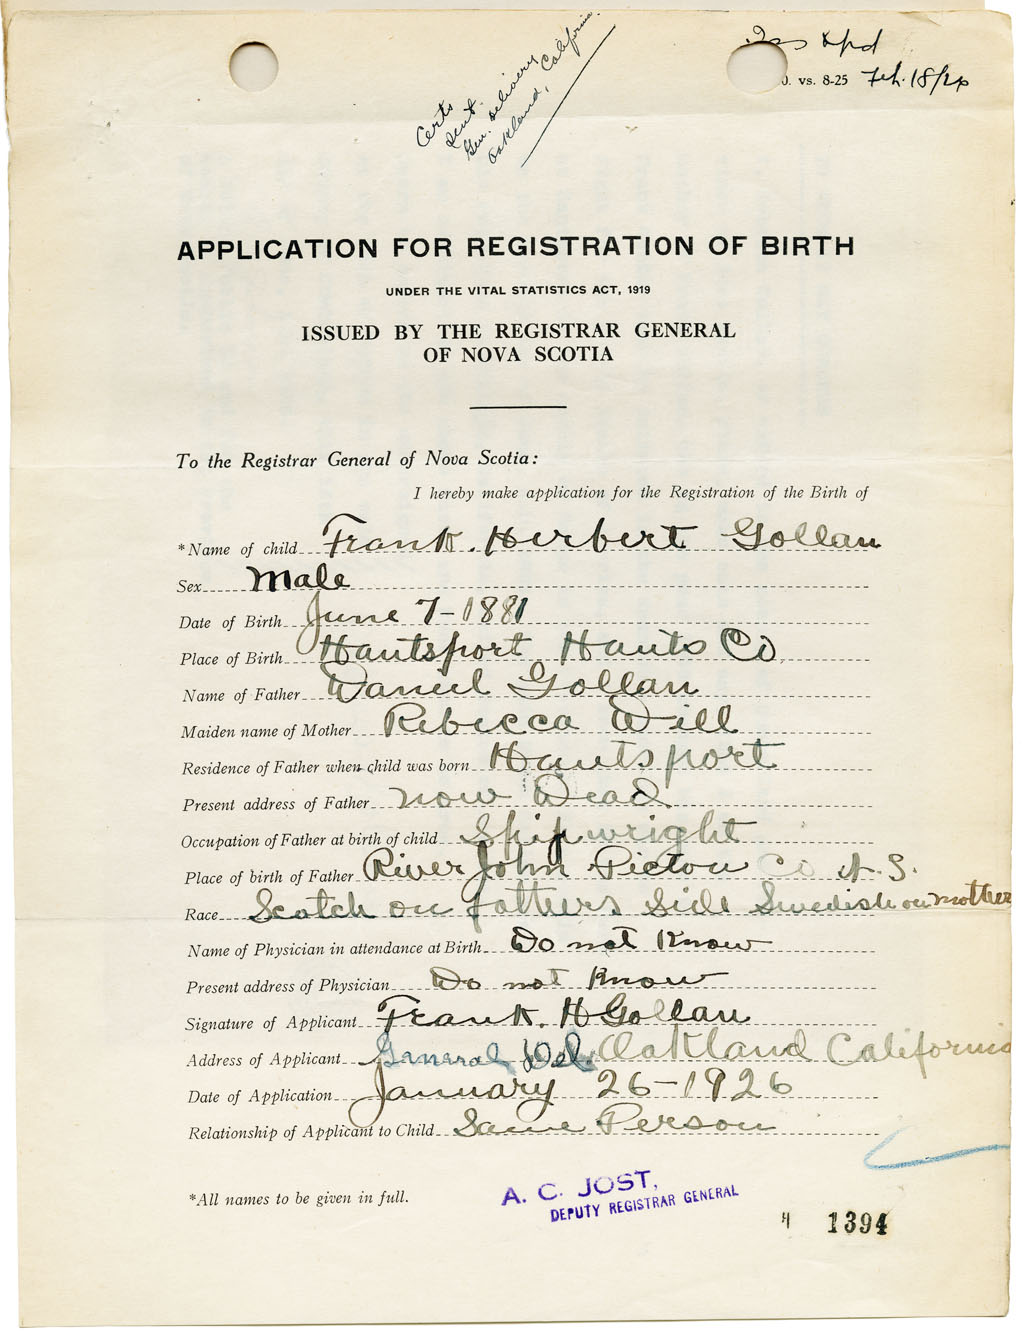 Certs
sent.
Gen. Delivery
Oakland, California.
vs. 8-25 Feb. 18/26
APPLICATION FOR REGISTRATION OF BIRTH
UNDER THE VITAL STATISTICS ACT, 1919
ISSUED BY THE REGISTRAR GENERAL
OF NOVA SCOTIA
To the Registrar General of Nova Scotia:
I hereby make application for the Registration of the Birth of
*Name of child Frank. Herbert Gollan
Sex Male
Date of Birth June 7-1881
Place of Birth Hantsport Hants Co
Name of Father Daniel Gollan
Maiden name of Mother Rebecca Will
Residence of Father when child was born Hantsport
Present address of Father now Dead
Occupation of Father at birth of child Shipwright
Place of birth of Father River John Pictou Co N.S.
Race Scotch on fathers side Swedish on mother
Name of Physician in attendance at Birth Do not Know
Present address of Physician Do not Know
Signature of Applicant Frank. H Gollan
Address of Applicant General Del. Oakland California
Date of Application January 26-1926
Relationship of Applicant to Child Same Person
*All names to be given in full.
A. C. JOST,
DEPUTY REGISTRAR GENERAL
1394